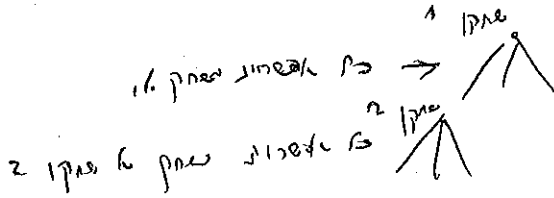 שחקן 1
כל אפשרות משחק →
שחקן 2
כל אפשרות משחק של שחקן 2